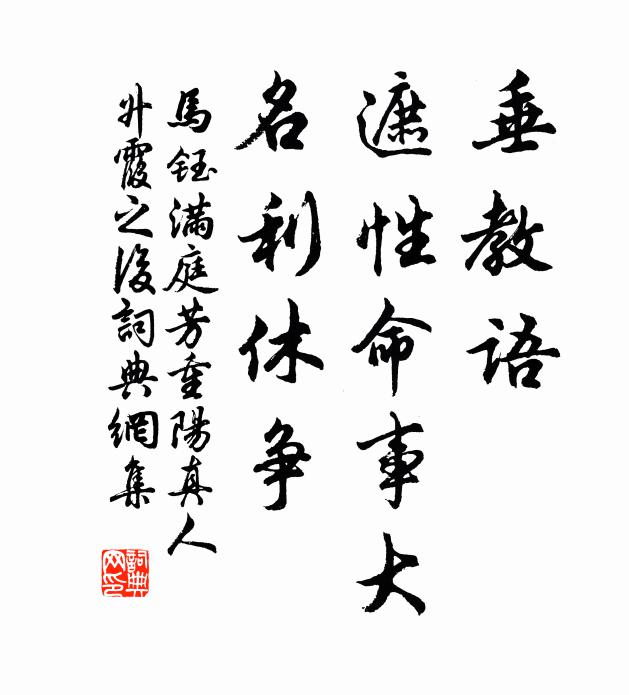 垂教语
遮性命事大
名利休争
馬鈺满庭芳重陽真人
升霞之後詞典網集
詞典网印